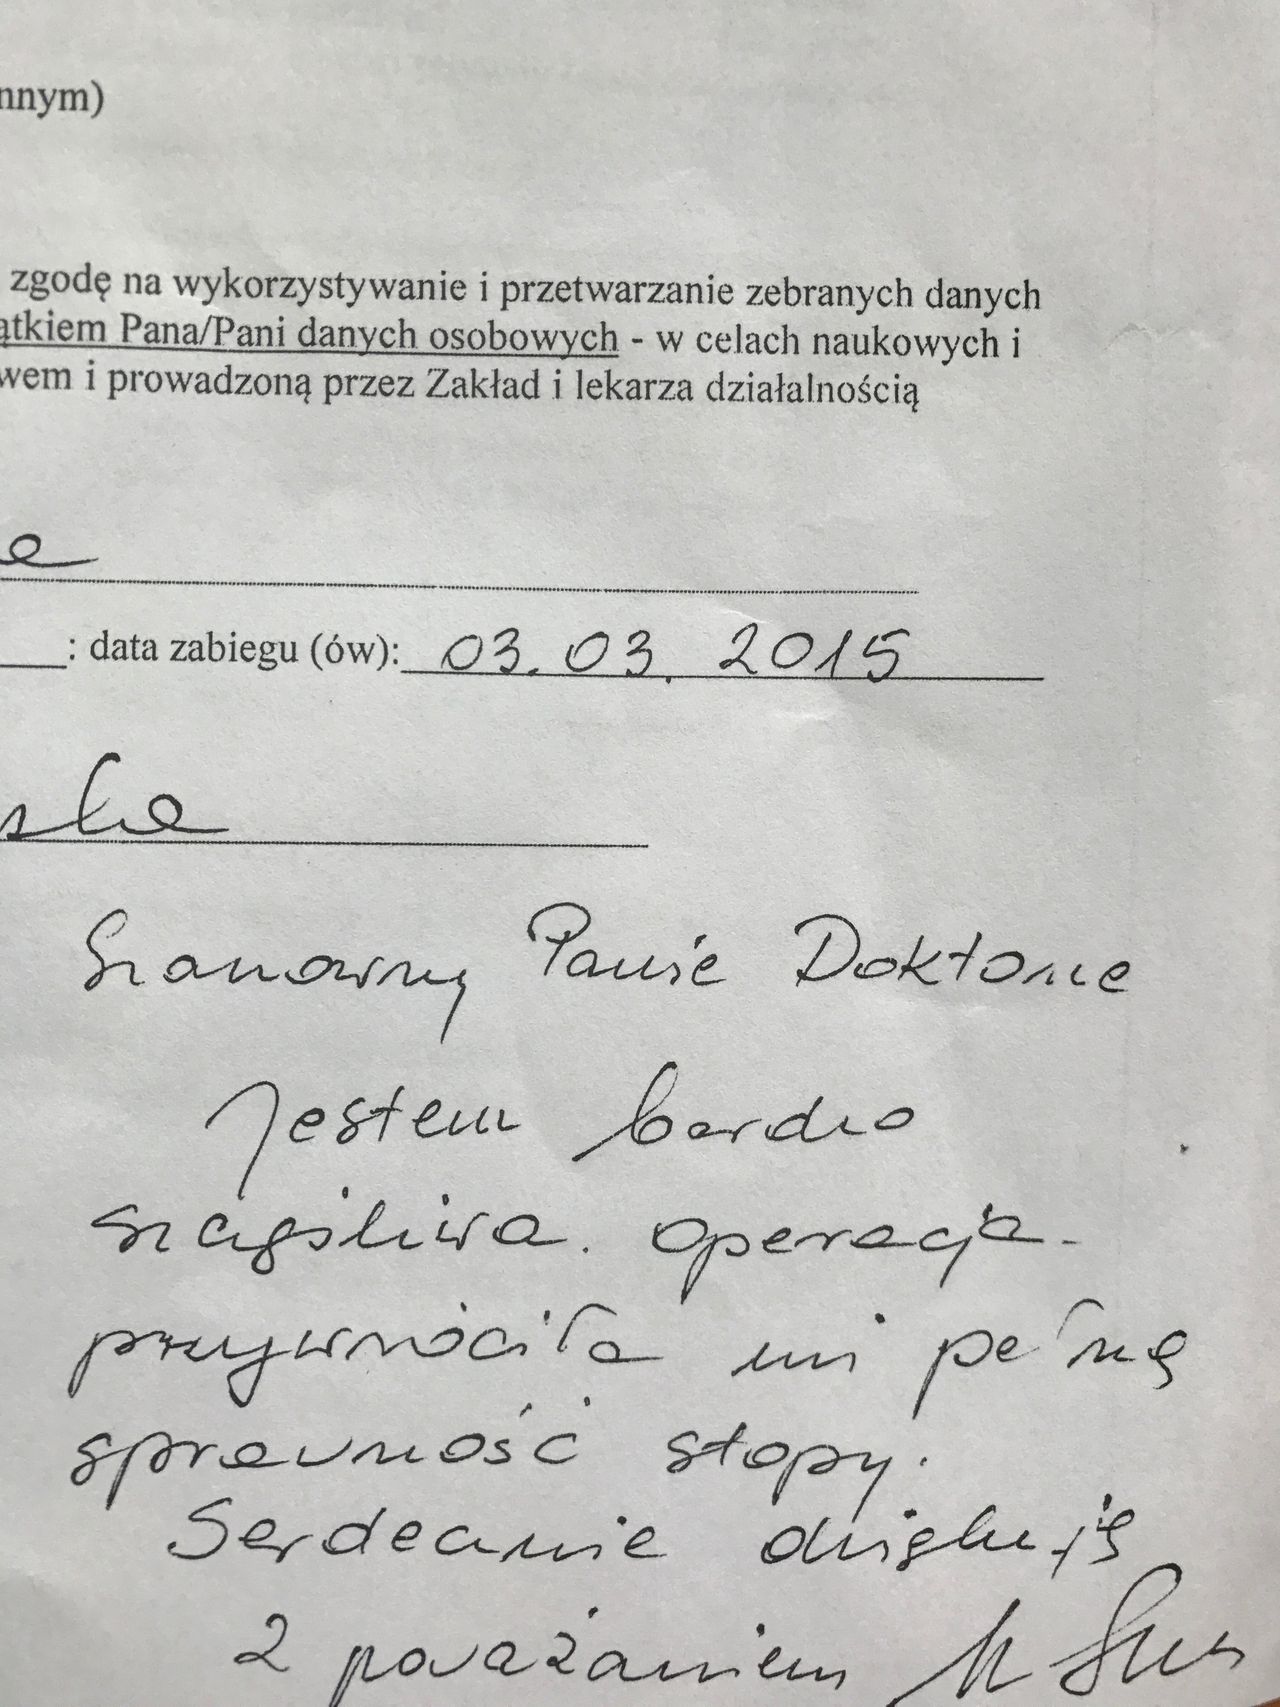 nnym)
zgodę na wykorzystywanie i przetwarzanie zebranych danych
ątkiem Pana/Pani danych osobowych - w celach naukowych i
wem i prowadzoną przez Zakład i lekarza działalnością
e
: data zabiegu (ów): 03.03.2015
ska
Szanowny Panie Doktorze
Jestem bardzo
szczęśliwa. Operacja
przywróciła mi pełną
sprawność stopy.
Serdecznie dziękuję
Z poważaniem